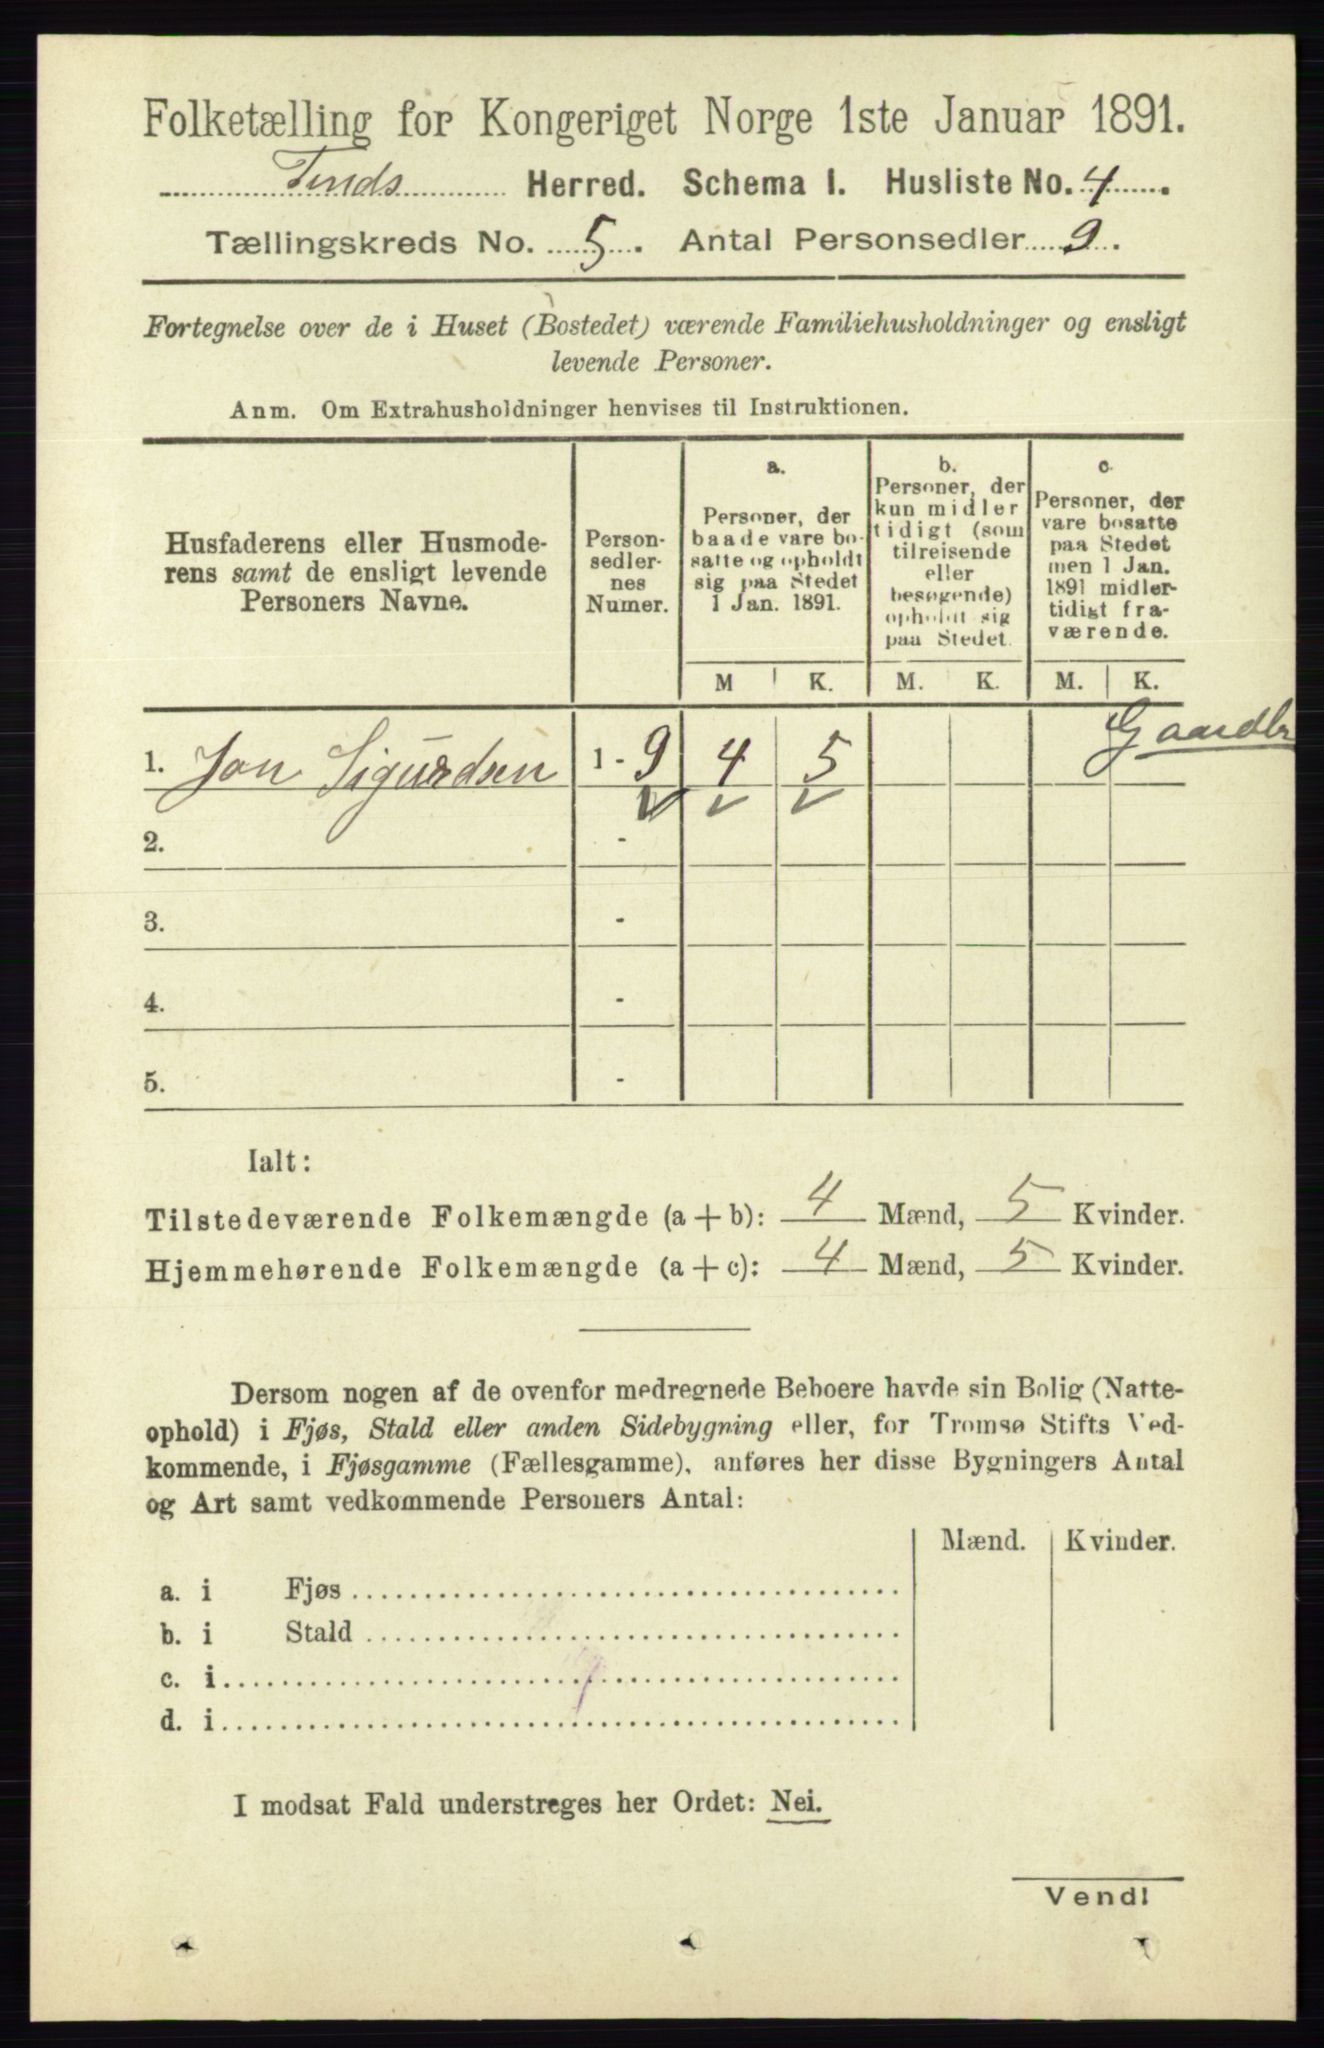 Folketælling for Kongeriget Norge 1ste Januar 1891.
Tinds Herred. Schema I. Husliste No. 4.
Tællingskreds No. 5. Antal Personsedler 9.
Fortegnelse over de i Huset (Bostedet) værende Familiehusholdninger og ensligt
levende Personer.
Anm. Om Extrahusholdninger henvises til Instruktionen.
Husfaderens eller Husmode-
rens samt de ensligt levende
Personers Navne.
Person-
sedler-
nes
Numer.
a.
Personer, der
baade vare bo-
satte og opholdt
sig paa Stedet
1 Jan. 1891.
b.
Personer, der
kun midler
tidigt (som
tilreisende
eller
besøgende)
opholdt sig
paa Stedet.
c.
Personer, der
vare bosatte
paa Stedet
men 1 Jan.
1891 midler-
tidigt fra-
værende.
M K. M. K. M. K.
1. Jon Sigurdsen 1 - 9 4 5
2. -
3. -
4. -
5. -
Ialt:
Tilstedeværende Folkemængde (a + b): 4 Mænd, 5 Kvinder.
Hjemmehørende Folkemængde (a + c): 4 Mænd, 5 Kvinder.
Dersom nogen af de ovenfor medregnede Beboere havde sin Bolig (Natte-
ophold) i Fjøs, Stald eller anden Sidebygning eller, for Tromsø Stifts Ved-
kommende, i Fjøsgamme (Fællesgamme), anføres her disse Bygningers Antal
og Art samt vedkommende Personers Antal:
Mænd. Kvinder.
a. i Fjøs
b. i Stald
c. i
d. i
I modsat Fald understreges her Ordet: Nei.
Vend!